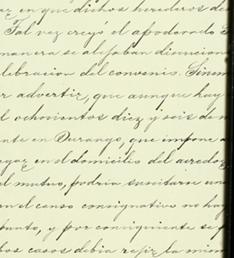 en que dichos herederos de
Tal vez creyó el apoderado
manera se alifaban disencion
lebracion del convenio. Sinem
r advertir, que aunque hay
l ochocientos diez y seis
nte en Durango, que impone a
en el domicilio del acredor
el mutuo, podria suscitar una
en el censo consignativo no hay
punto, y por consiguiente se
casos debia regir la mism